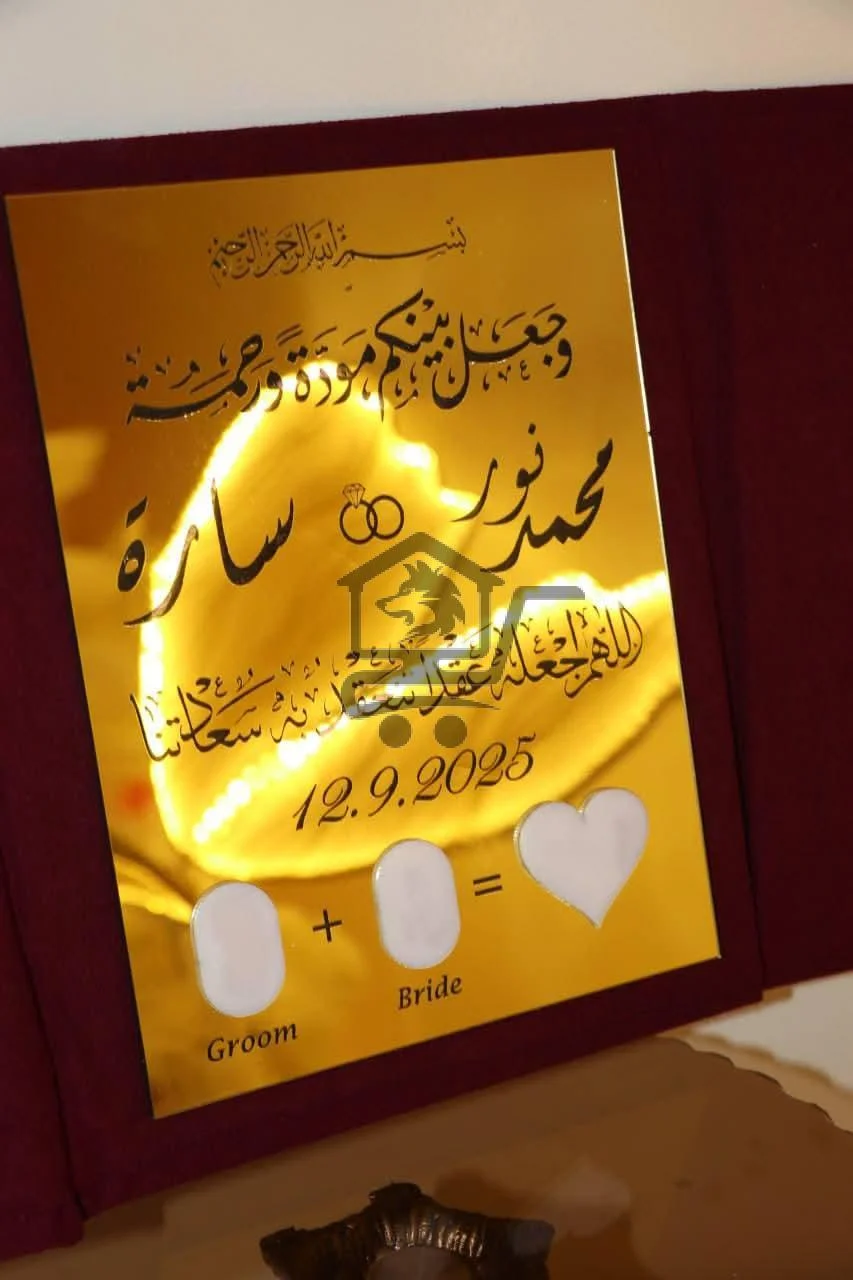 بسم الله الرحمن الرحيم
وَجَعَلَ بَيْنَكُم مَوَدَّةً وَرَحْمَةً
محمد نور سارة
اللهم اجعله عقدا تنعقد به سعادتنا
12.9.2025
+ =
Groom Bride